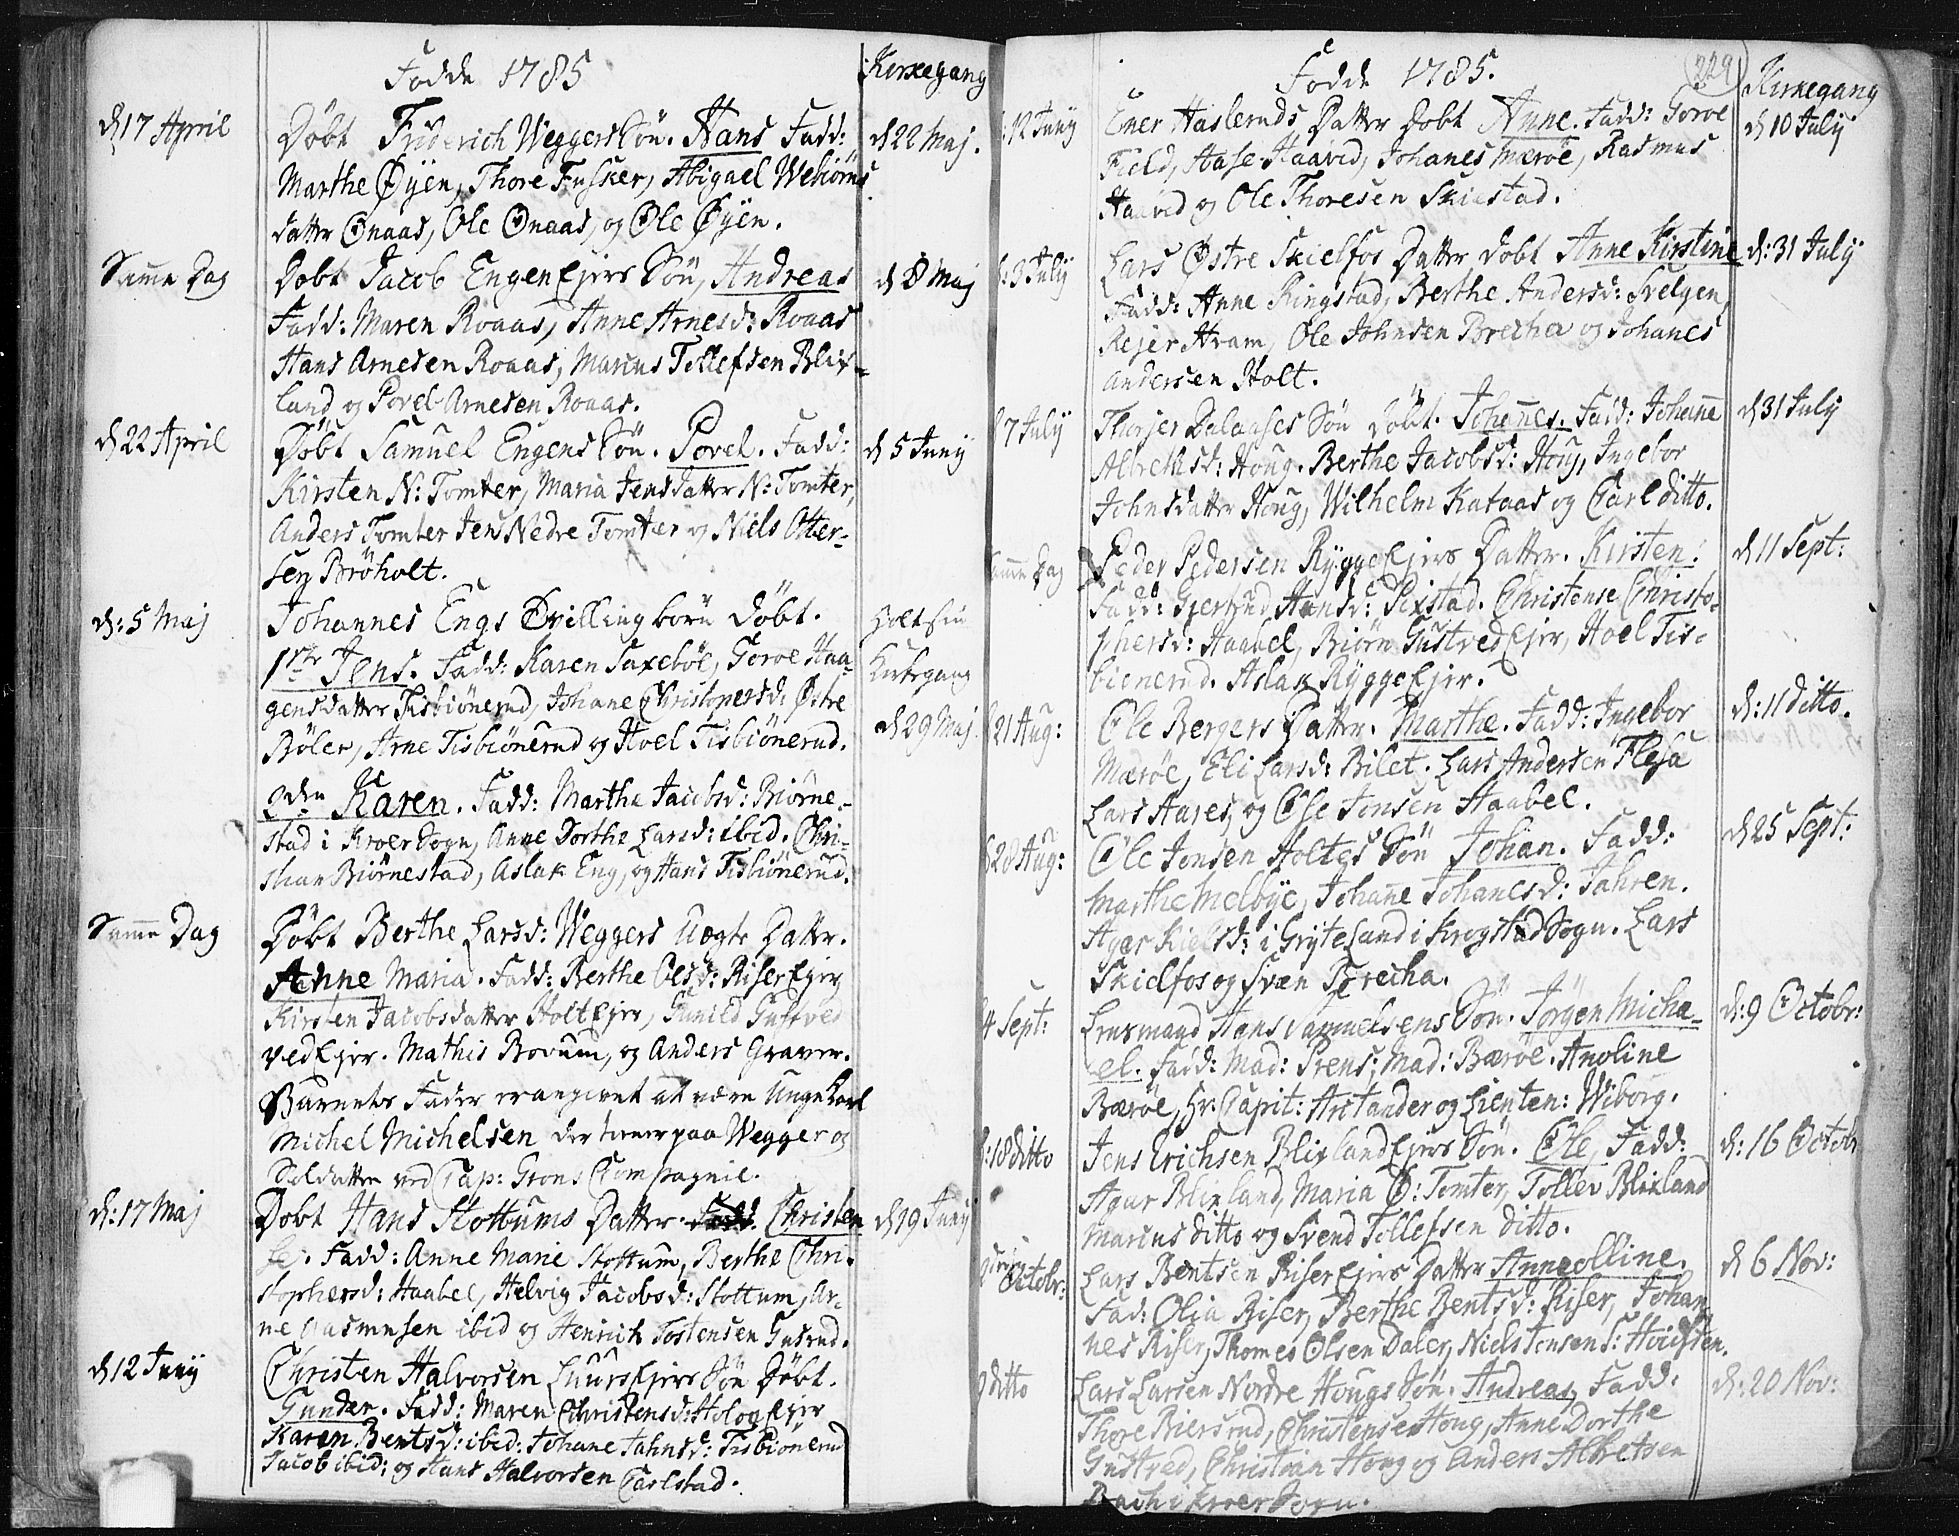 Fødde 1785
Kirkegang
d 17 April
Døbt Friderich Weggers Søn. Hans Fadd:
d 22 Maj.
Marthe Øÿen, Thore Fusker, Abigael Webiörns
datter Onaas, Ole Onaas, og Ole Øÿen.
Samme Dag
Døbt Jacob Engen Ejers Sön, Andreas
d 8 Maj
Fadd: Maren Roaas, Anne Arnesd: Roaas
Hans Arnesen Roaas, Marcus Tollefsen Blix-
land og Povel Arnesen Roaas.
d 22 April
Døbt Samuel Engens Søn. Povel. Fadd:
d 5 Junij
Kirsten N: Tomter, Maria Jensdatter N: Tomter,
Anders Tomter Jens Nedre Tomter og Niels Otter-
sen Bröholt.
d: 5 Maj
Johannes Engs Tvilling börn Döbt.
Holt sin
1ste Jens. Fadd: Karen Saxeböl, Torve Haa-
Kirkegang
gensdatter Tisbiönerud, Johane Christopersd: Østre
d 29 Maj
Böler, Arne Tisbiönerud og Hoel Tisbiönerud.
2den Karen. Fadd: Marthe Jacobsd: Biörne-
stad i Kroer Sogn, Anne Dorthe Larsd: ibid. Chri-
stian Biörnestad, Aslak Eng, og Hans Tisbiönerud.
Samme Dag
Döbt Berthe Larsd: Weggers Uægte Datter.
Anne Maria. Fadd: Berthe Olsd: Riser Ejer
Kirsten Jacobsdatter Holt Ejer, Gunild Gustved
ved Ejer. Mathis Bovum, og Anders Graver.
Barnets Fader er angivet at være Unge Karl
Michel Michelsen der tiener paa Wegger og
Soldatter ved Cap: Grons Compagnie.
d: 17 Maj
Döbt Hans Stottums Datter. Christen
d 19 Junij
se. Fadd: Anne Marie Stottum, Berthe Chri-
stophersd: Haabel, Helvig Jacobsd: Stottum, Ar-
ne Rasmusen ibid og Henrich Tostensen Gusrud.
d 12 Junij
Christen Halvorsen Luurs Ejers Sön Döbt.
Gunder. Fadd: Maren Christensd: Holog Ejer
Karen Bentsd: ibid: Johane Jahnsd: Tisbionerud
Jacob ibid: og Hans Halvorsen Carlstad.
Fødde 1785.
229
Kirkegang
12 Junij
Ener Hasleruds Datter Döbt Anne. Fadd: Torve
d 10 Julij
Field, Aase Haavid, Johanes Mæröe, Rasmus
Haavid og Ole Thoresen Skiestad.
3 Julij
Lars Østre Skielfos Datter Döbt Anne Kirstine
d: 31 Julij
Fadd: Anne Ringstad, Berthe Andersd: Svelgen,
Rejer Hvam, Ole Johnsen Brecha og Johanes
Andersen Holt.
7 Julij
Thorjer Dalaases Sön Döbt. Johanes. Fadd: Johane
d 31 Julij
Albrethsd: Houg. Berthe Jacobsd: Houg, Ingebor
Johnsdatter Houg, Wilhelm Kataas og Carl ditto.
Samme Dag
Peder Pedersen Rÿgge Ejers Datter. Kirsten.
d 11 Sept:
Fadd: Gjertrud Hansd: Sixstad. Christense Christo-
phersd: Haabel, Biörn Gustved Ejer, Hoel Tis-
bienerud. Aslak Rÿgge Ejer.
21 Aug:
Ole Bergers Datter. Marthe. Fadd: Ingebor
d: 11 ditto.
Mæröe, Eli Larsd: Bilet. Lars Andersen Flesa
Lars Aares, og Ole Jonsen Haabel.
28 Aug:
Ole Jonsen Holtes Sön Johan. Fadd:
d 25 Sept:
Marthe Melbÿe, Johane Johanesd: Jahren.
Agar Kielsd: i Grÿteland i Krogstad Sogn. Lars
Skielfos og Sven Brecha.
4 Sept:
Lensmand Hans Samuelsens Sön. Jörgen Micha-
d: 9 Octobr:
el. Fadd: Mad: Stens: Mad: Bæröe. Anoline
Bæröe, Hr: Capit: Astander og Lieuten: Wiborg.
18 ditto
Jens Erichsen Blixland Ejers Sön. Ole, Fadd:
d: 16 Octobr
Agar Blixland, Maria Ø: Tomter, Tollev Blixland
Marcus ditto og Svend Tollefsen ditto.
Octobr:
Lars Bentsen Riser Ejers Datter Anneolline.
d 6 Nov:
Fad: Olia Riser, Berthe Bentsd: Riser, Johan
nes Riser, Thomes Olsen Daler, Niels Jensen S: Hvidsten.
ditto
Lars Larsen Nordre Hougs Sön. Andreas, Fadd:
d: 20 Nov:
Thore Biersrud, Christense Houg, Anne Dorthe
Gustved, Christian Houg og Anders Albretsen
Bach i Kroer Sogn.